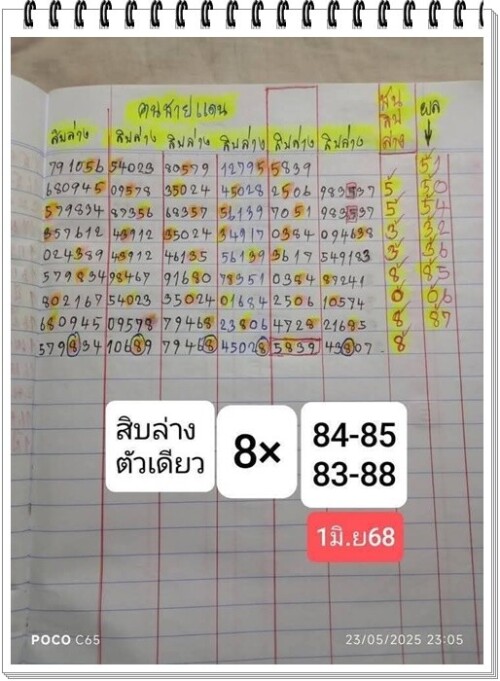 คนชายแดน
สิบล่าง สิบล่าง สิบล่าง สิบล่าง สิบล่าง สิบล่าง
สน สิบ ล่าง
ผล
791056 54023 80579 12795 5839 51
680945 09578 35024 45028 2506 983537 5 30
579834 87356 68357 56139 7051 983537 5 54
357612 43912 35024 34917 0384 094638 3 32
024389 43912 46135 56139 3617 549183 3 36
579834 98467 91680 78351 0384 87241 8 85
802167 54023 35024 01684 2506 10574 0 06
680945 09578 79468 23806 4728 21685 8 87
579834 10689 79468 45028 5839 43807 8
สิบล่าง
ตัวเดียว
8×
84-85
83-88
1มิ.ย68
POCO C65
23/05/2025 23:05